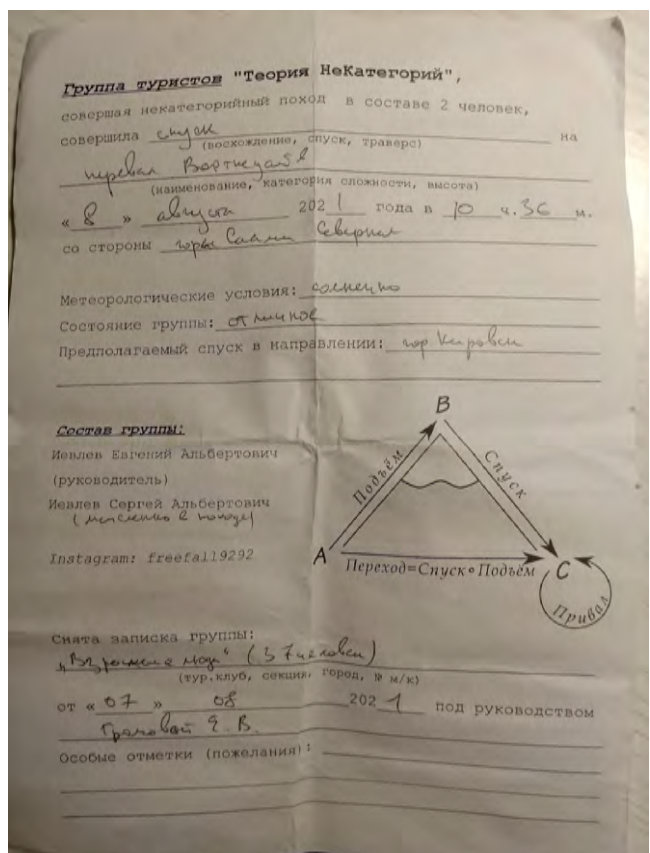 Группа туристов "Теория НеКатегорий",
совершая некатегорийный поход в составе 2 человек,
совершила спуск на
(восхождение, спуск, траверс)
перевал
(наименование, категория сложности, высота)
« 8 » августа 2021 года в 10 ч. 36 м.
со стороны горы Саами Северная
Метеорологические условия: солнечно
Состояние группы: отличное
Предполагаемый спуск в направлении: гор Кировск
Состав группы:
Иевлев Евгений Альбертович
(руководитель)
Иевлев Сергей Альбертович
(мысленно в походе)
Instagram: freefall9292
B
Подъём
Спуск
A
C
Переход=Спуск∘Подъём
Привал
Снята записка группы:
(37 человек)
(тур.клуб, секция, город, № м/к)
от « 07 » 08 2021 под руководством
Е. В.
Особые отметки (пожелания):